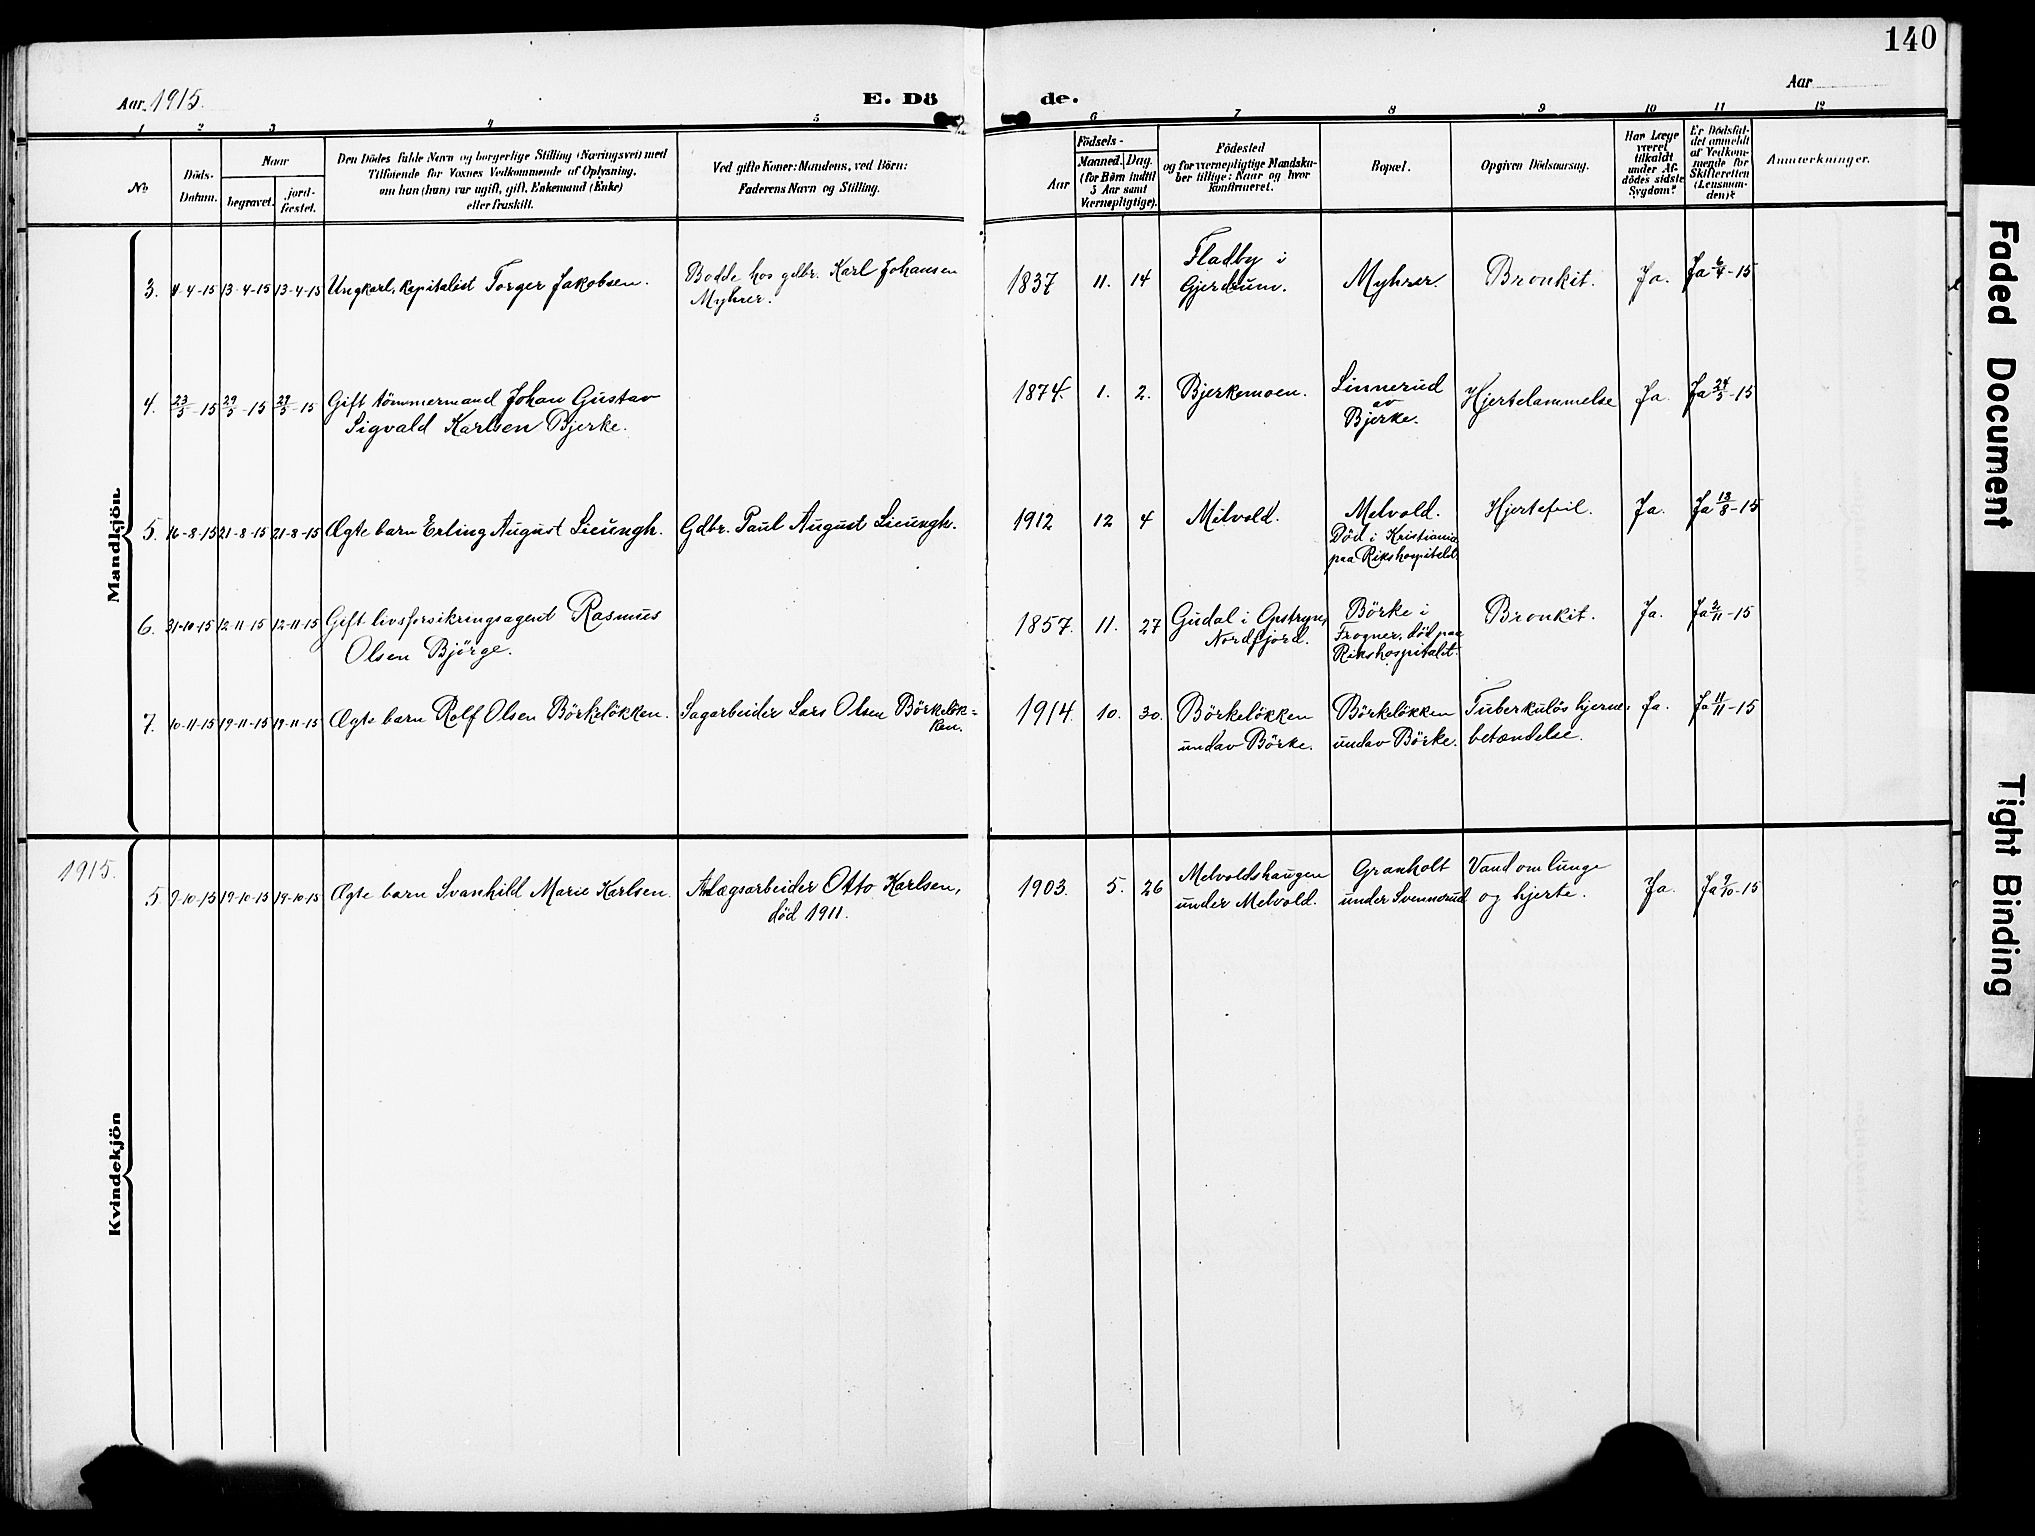 140
Aar 1915.
E. Dö
de.
Aar
1 2 3 4 5 6 7 8 9 10 11 12
No
Döds-Datum.
Naar
begravet.
jordfæstet.
Den Dödes fulde Navn og borgerlige Stilling (Næringsvei) med
Tilföiende for Voxnes Vedkommende af Oplysning,
om han (hun) var ugift, gift, Enkemand (Enke)
eller fraskilt.
Ved gifte Koner: Mandens, ved Börn:
Faderens Navn og Stilling.
Aar
Födsels-
Maaned. Dag.
(for Börn indtil
5 Aar samt
Værnepligtige).
Födested
og for værnepligtige Mandska-
ber tillige: Naar og hvor
konfirmeret.
Bopæl.
Opgiven Dödsaarsag.
Har Læge
været
tilkaldt
under Af-
dödes sidste
Sygdom?
Er Dödsfal-
det anmeldt
af Vedkom-
mende for
Skifteretten
(Lensman-
den)?
Anmærkninger.
Mandkjön.
3. 4-4-15 13-4-15 13-4-15 Ungkarl, kapitalist Torger Jakobsen.
Bodde hos gdbr. Karl Johansen
Myhrer.
1837 11. 14
Fladby i
Gjerdrum.
Myhrer.
Bronkit.
Ja.
Ja 6/4-15
4. 23/5-15 29/5-15 29/5-15 Gift tömmermand Johan Gustav
Sigvald Karlsen Bjerke.
1874. 1. 2.
Bjerkemoen.
Linnerud
av
Bjerke.
Hjertelammelse
Ja.
Ja 24/5-15
5. 16-8-15 21-8-15 21-8-15 Ægte barn Erling August Lieungh.
Gdbr. Paul August Lieungh.
1912 12 4
Melvold.
Melvold.
Död i Kristiania
paa Rikshospitalet
Hjertefeil.
Ja.
Ja 18/8-15
6. 31-10-15 12-11-15 12-11-15 Gift livsforsikringsagent Rasmus
Olsen Bjørge.
1857. 11. 27
Gudal i Opstryn,
Nordfjord.
Börke i
Frogner, död paa
Rikshospitalet.
Bronkit.
Ja.
Ja 2/11-15
7. 10-11-15 19-11-15 19-11-15 Ægte barn Rolf Olsen Börkelökken.
Sagarbeider Lars Olsen Börkelök=
ken.
1914. 10. 30.
Börkelökken
undav Börke.
Börkelökken
undav Börke.
Tuberkulös hjerne-
betændelse.
Ja.
Ja 11/11-15
1915.
Kvindekjön
5 9-10-15 19-10-15 19-10-15 Ægte barn Svanhild Marie Karlsen.
Anlægsarbeider Otto Karlsen,
död 1911.
1903. 5. 26
Melvoldshaugen
under Melvold.
Granholt
under Svennerud
Vand om lunge
og hjerte.
Ja.
Ja 9/10-15
Faded Document
Tight Binding